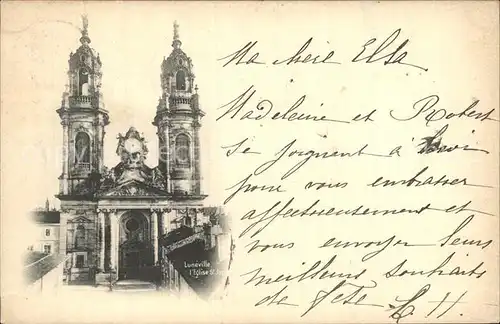 Ma chère Elsa
Madeleine et Robert
se joignent à
pour vous embrasser
affectueusement et
vous envoyer leurs
meilleurs souhaits
de fête L. H.
Lunéville
l'Église St